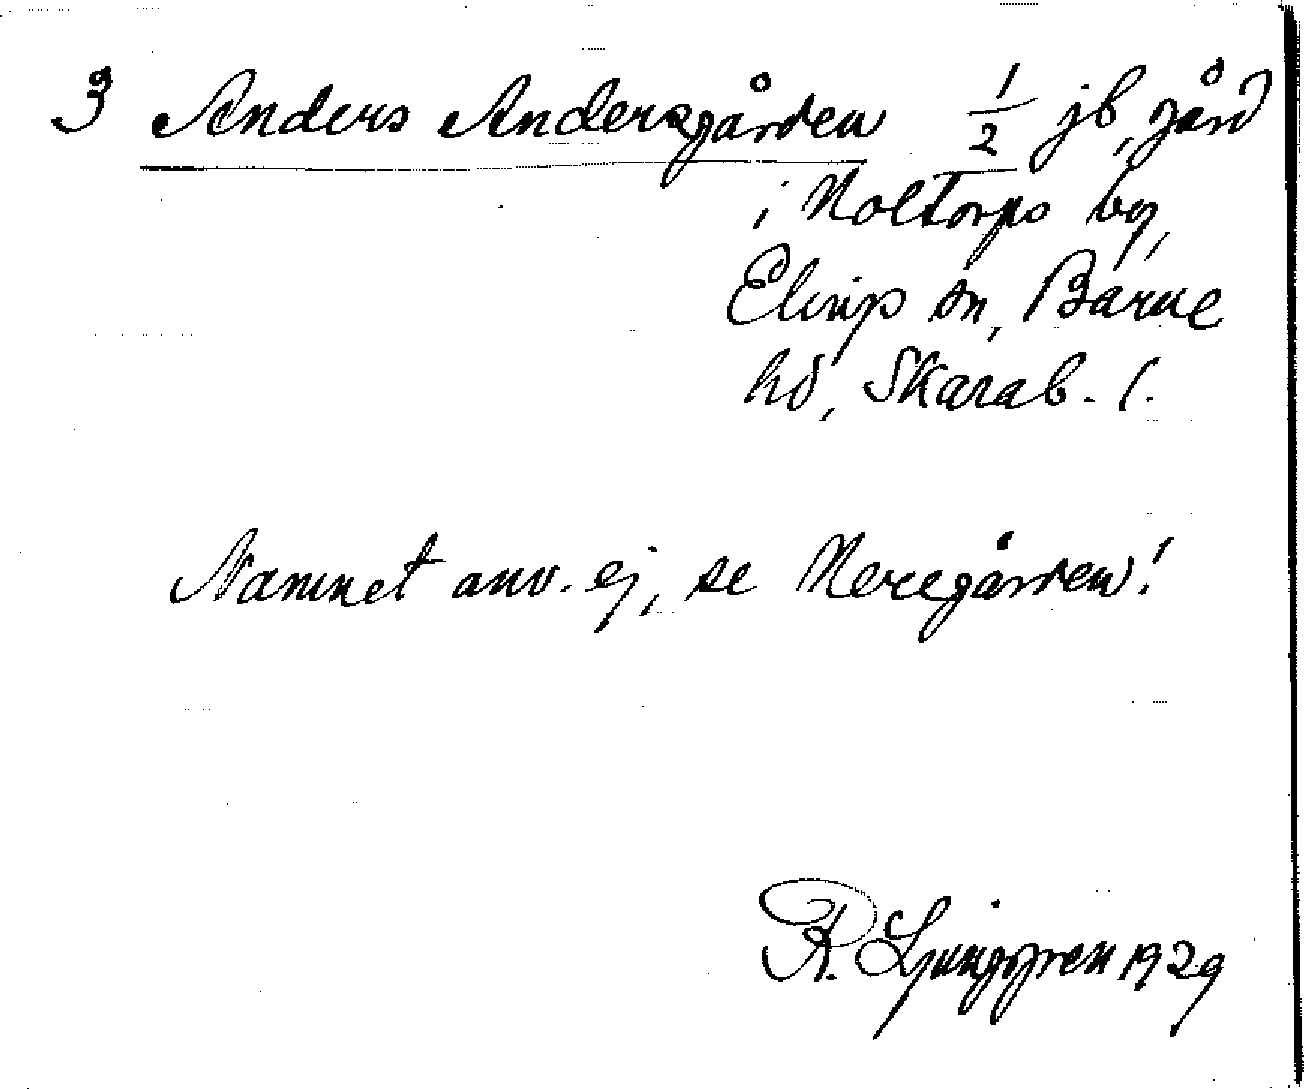 3 Anders Andersgården 1/2 jb, gård
i Noltorps by,
Elings sn, Barne
hd, Skarab. l.
Namnet anv. ej, se Neregården!
R. Ljunggren 1929